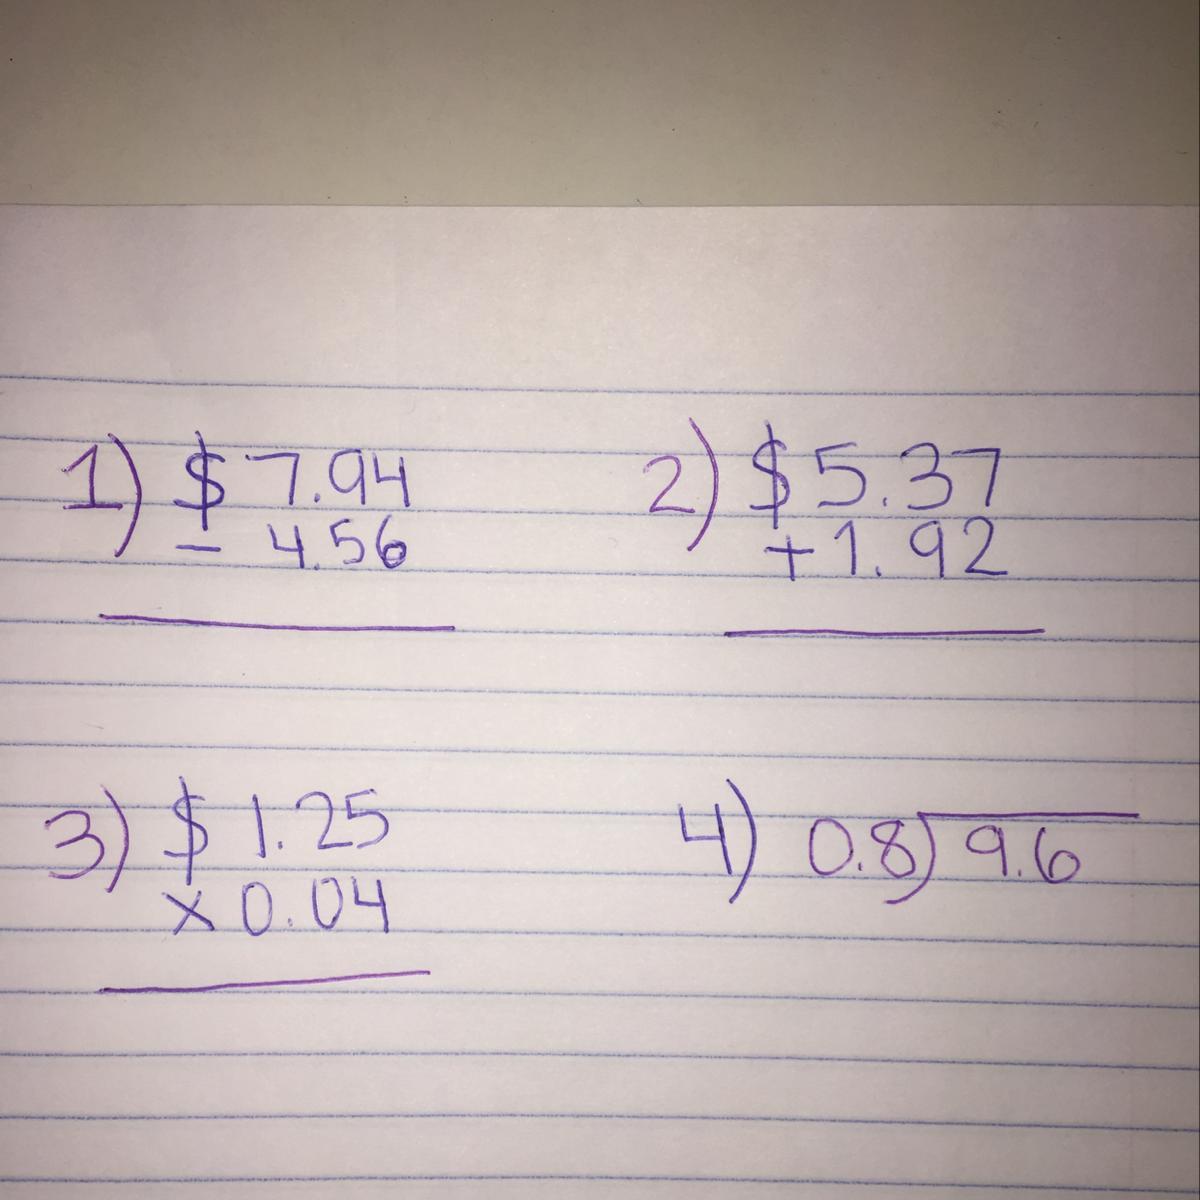 1) $ 7.94
- 4.56
2) $ 5.37
+ 1.92
3) $ 1.25
x 0.04
4) 0.8)9.6